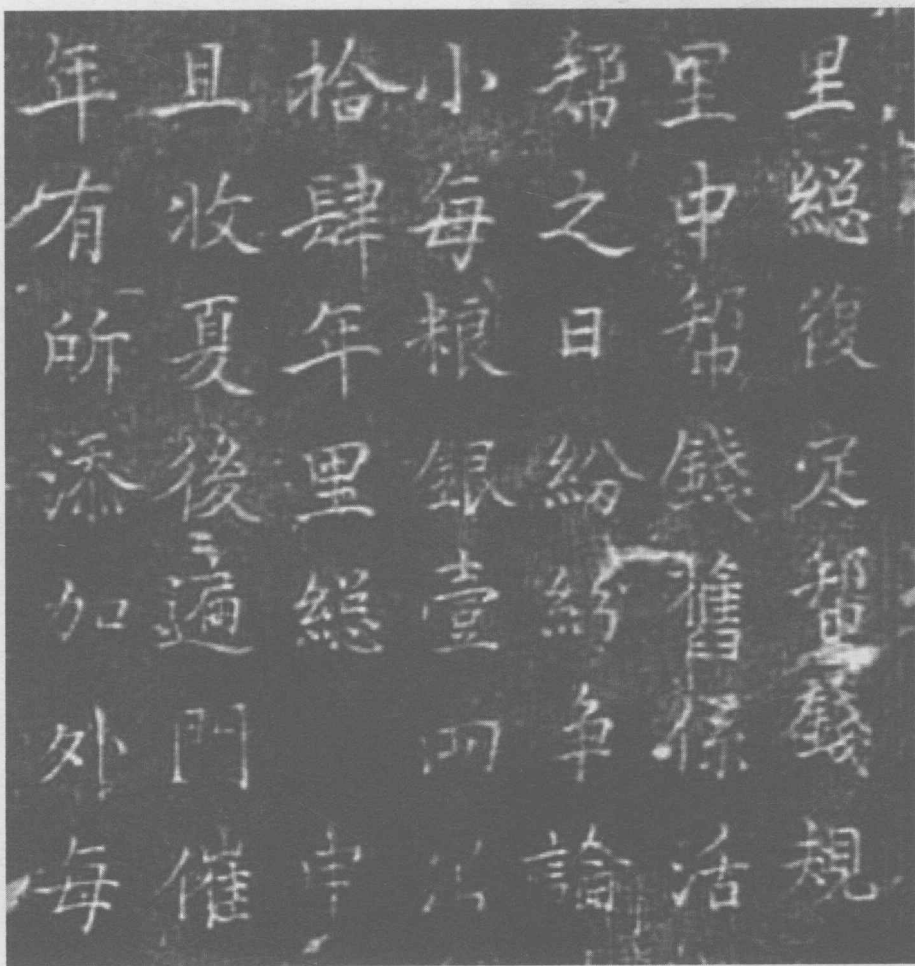 里總復定幫錢規
里中幫錢舊係活
幫之日紛紛争論
小每粮銀壹兩出
拾肆年里總 申
且收夏後遍門催
年有所添加外每